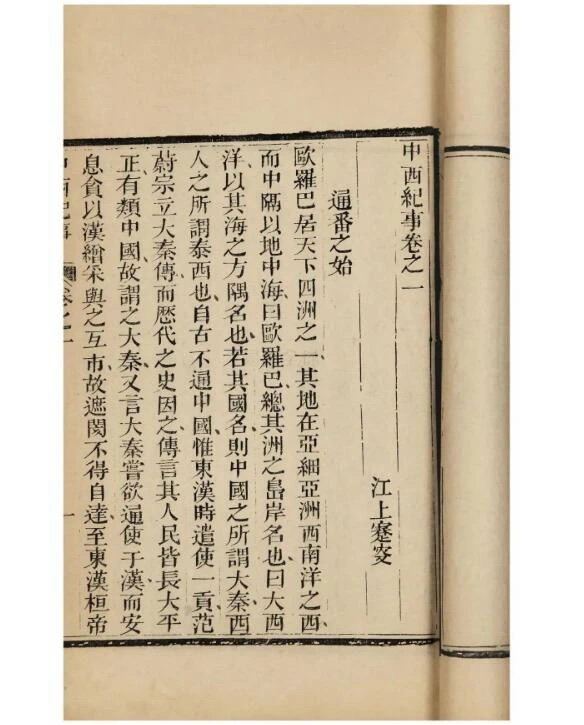 中西紀事卷之一
江上蹇叟
通番之始
歐羅巴居天下四洲之一其地在亞細亞洲西南洋之西
而中隔以地中海曰歐羅巴總其洲之島岸名也曰大西
洋以其海之方隅名也若其國名則中國之所謂大秦西
人之所謂泰西也自古不通中國惟東漢時遣使一貢范
蔚宗立大秦傳而歷代之史因之傳言其人民皆長大平
正有類中國故謂之大秦又言大秦嘗欲通使于漢而安
息貪以漢繒采與之互市故遮閡不得自達至東漢桓帝
中西紀事 卷之一 一